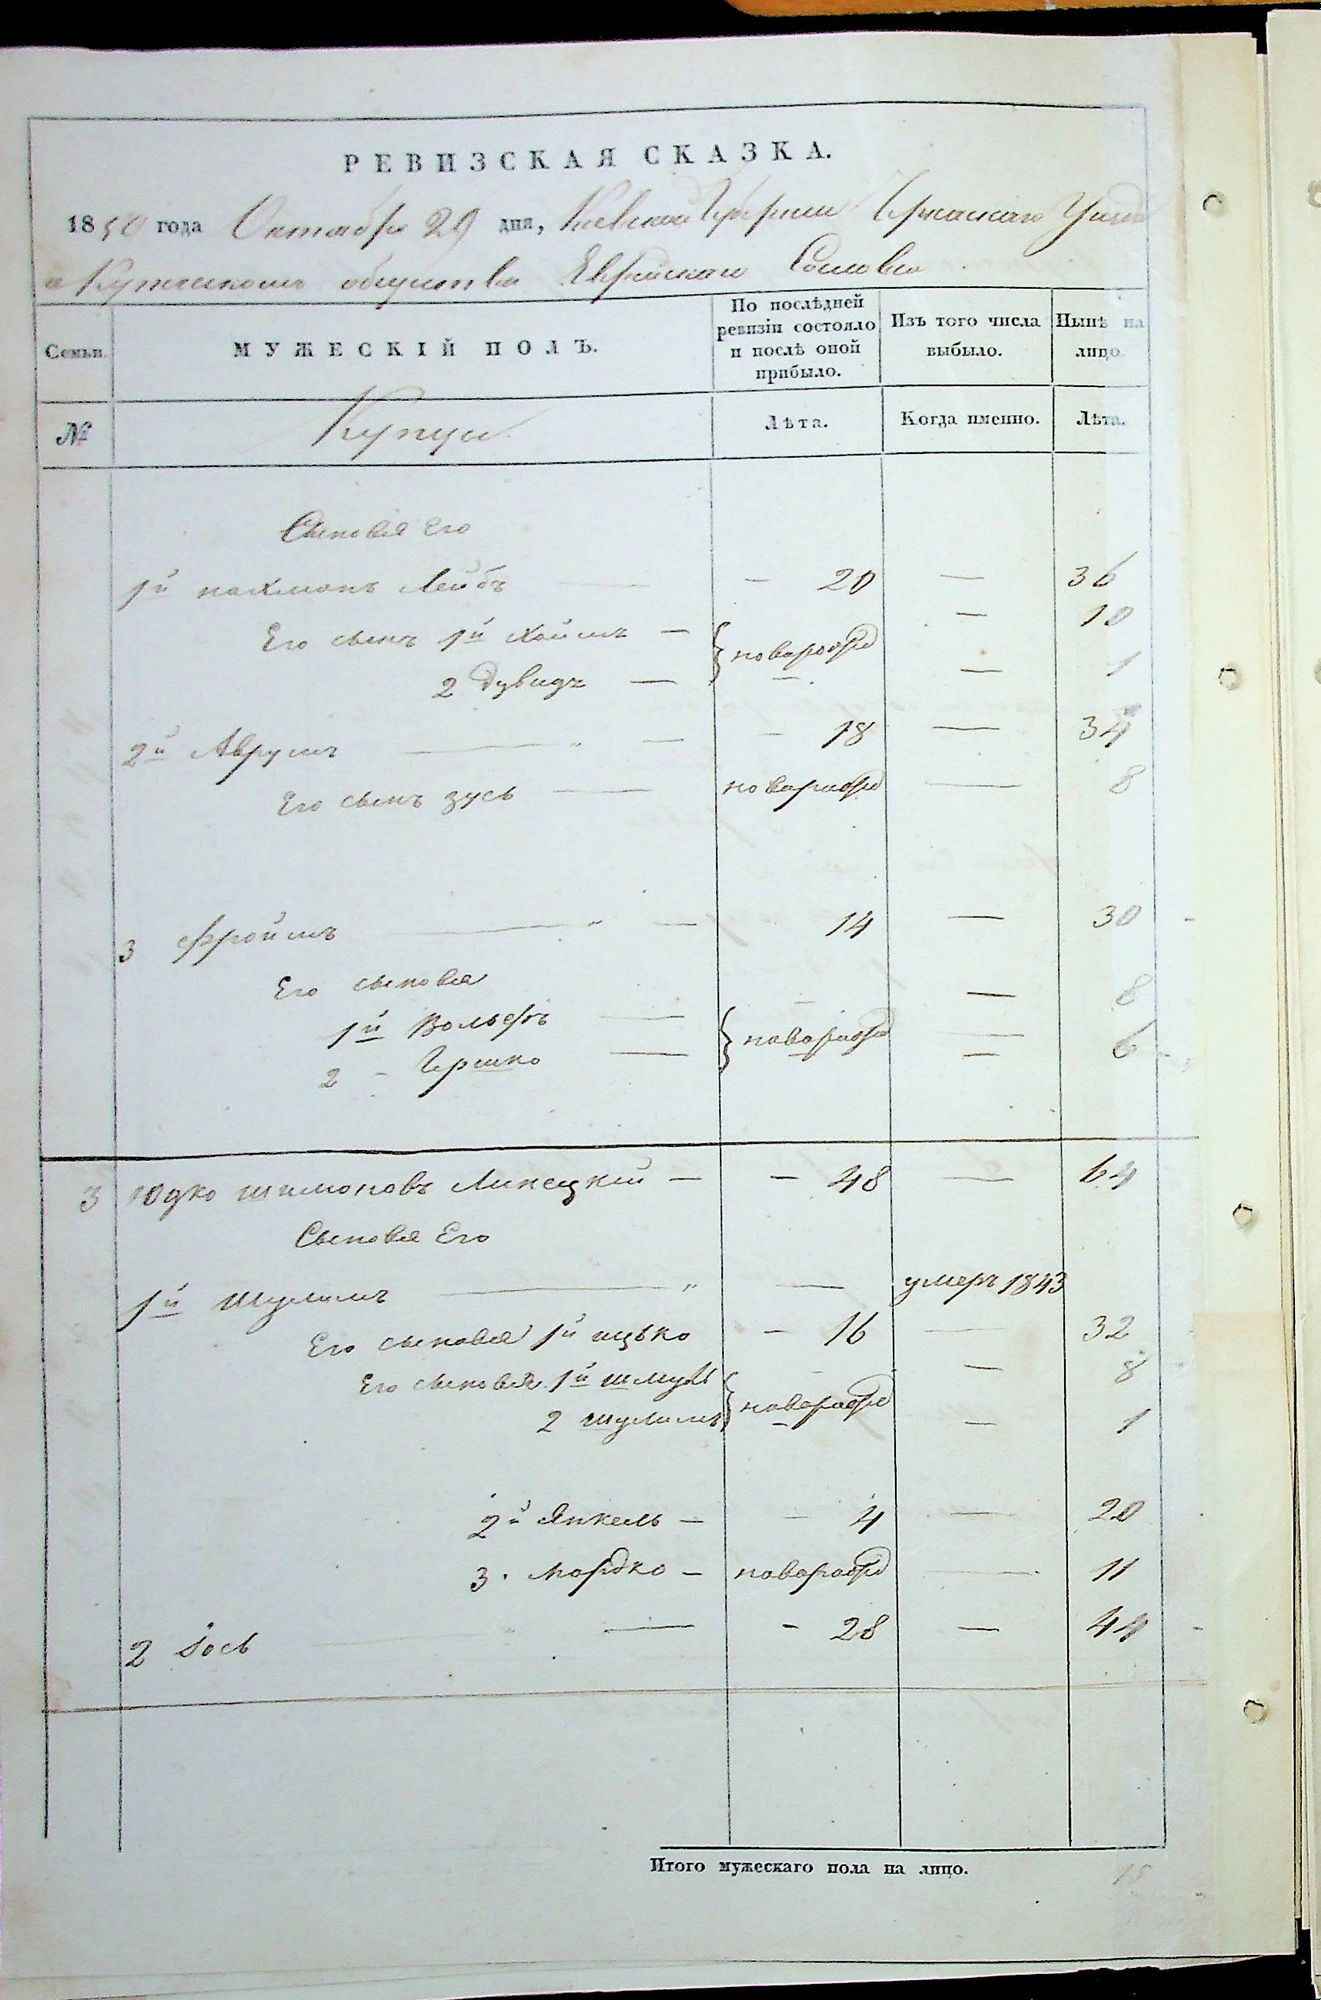 РЕВИЗСКАЯ СКАЗКА.
1850 года Октября 29 дня, Киевской Губернии Черкаскаго Уезда
о Купеческомъ обществе Еврейскаго Сословия
Семьи. МУЖЕСКІЙ ПОЛЪ. По послѣдней ревизіи состояло и послѣ оной прибыло. Изъ того числа выбыло. Нынѣ на лицо.
№ Купцы Лѣта. Когда именно. Лѣта.
Сыновья Его
1й Нахманъ Лейбъ — 20 — 36
Его сынъ 1й Хаимъ — новорожд — 10
2 Дувидъ — — 1
2й Аврумъ — — 18 — 34
Его сынъ Зусь — новорожд — 8
3 Фроимъ — 14 — 30
Его сыновья
1й Вольфъ — новорожд — 8
2 - Гершко — — 6
3 Юдко Шимоновъ Липецкий — — 48 — 64
Сыновья Его
1й Шулимъ — — умеръ 1843
Его сыновья 1й Ицько — 16 — 32
Его сыновья 1й Шмуль новорожд — 8
2 Шулимъ — 1
2й Янкель — — 4 — 20
3. Мордко — новорожд — 11
2 Іось — — 28 — 44
Итого мужескаго пола на лицо. 15